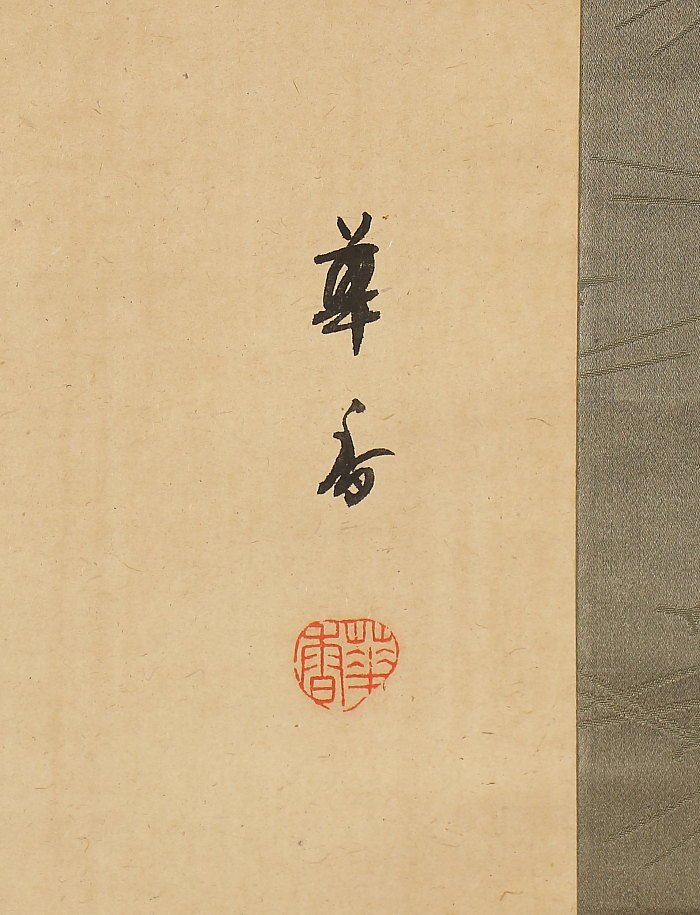 華香
華香